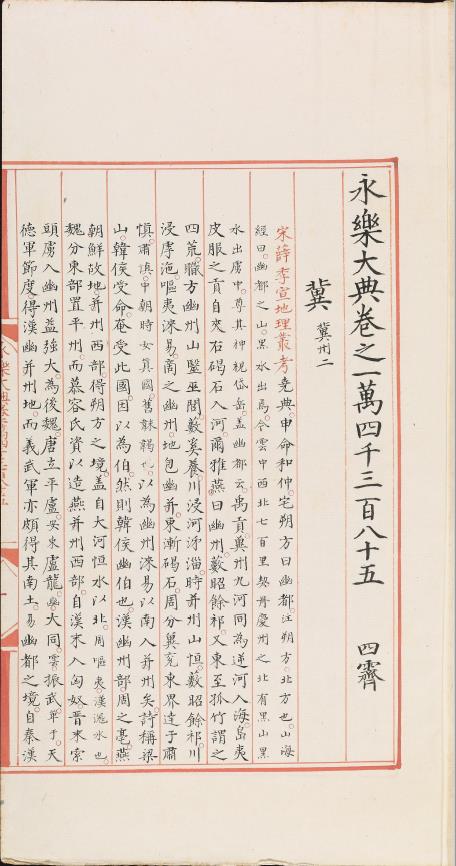 永樂大典卷之一萬四千三百八十五 四霽
冀 冀州二
宋薛季宣地理叢考堯典申命和仲宅朔方曰幽都注朔方北方也山海
經曰幽都之山黑水出焉今雲中西北七百里契丹慶州之北有黑山黑
水出虜中尊其神視岱岳蓋幽都云禹貢冀州九河同為逆河入海島夷
皮服之貢自夾右碣石入河爾雅燕曰幽州藪昭餘祁又東至孤竹謂之
四荒職方幽州山鎮醫巫閭藪奚養川浸河泲淄時并州山恒藪昭餘祁川
浸虖池嘔夷淶易商之幽州地包幽并東漸碣石周分冀兗東界達于肅
慎肅慎中朝時女真國舊靺鞨也以為幽州淶易以南入并州矣詩稱梁
山韓侯受命奄受北國因以為伯然則韓侯幽伯也漢幽州部周之亳燕
朝鮮故地并州西部得朔方之境蓋自大河恒水以北周嘔夷漢滱水也
魏分東部置平州而慕容氏資以造燕并州西部自漢末入匈奴晋末索
頭虜入幽州益強大為後魏唐立平盧安東盧龍幽大同雲振武單于天
德軍節度得漢幽并州地而義武軍亦頗得其南土易幽都之境自秦漢